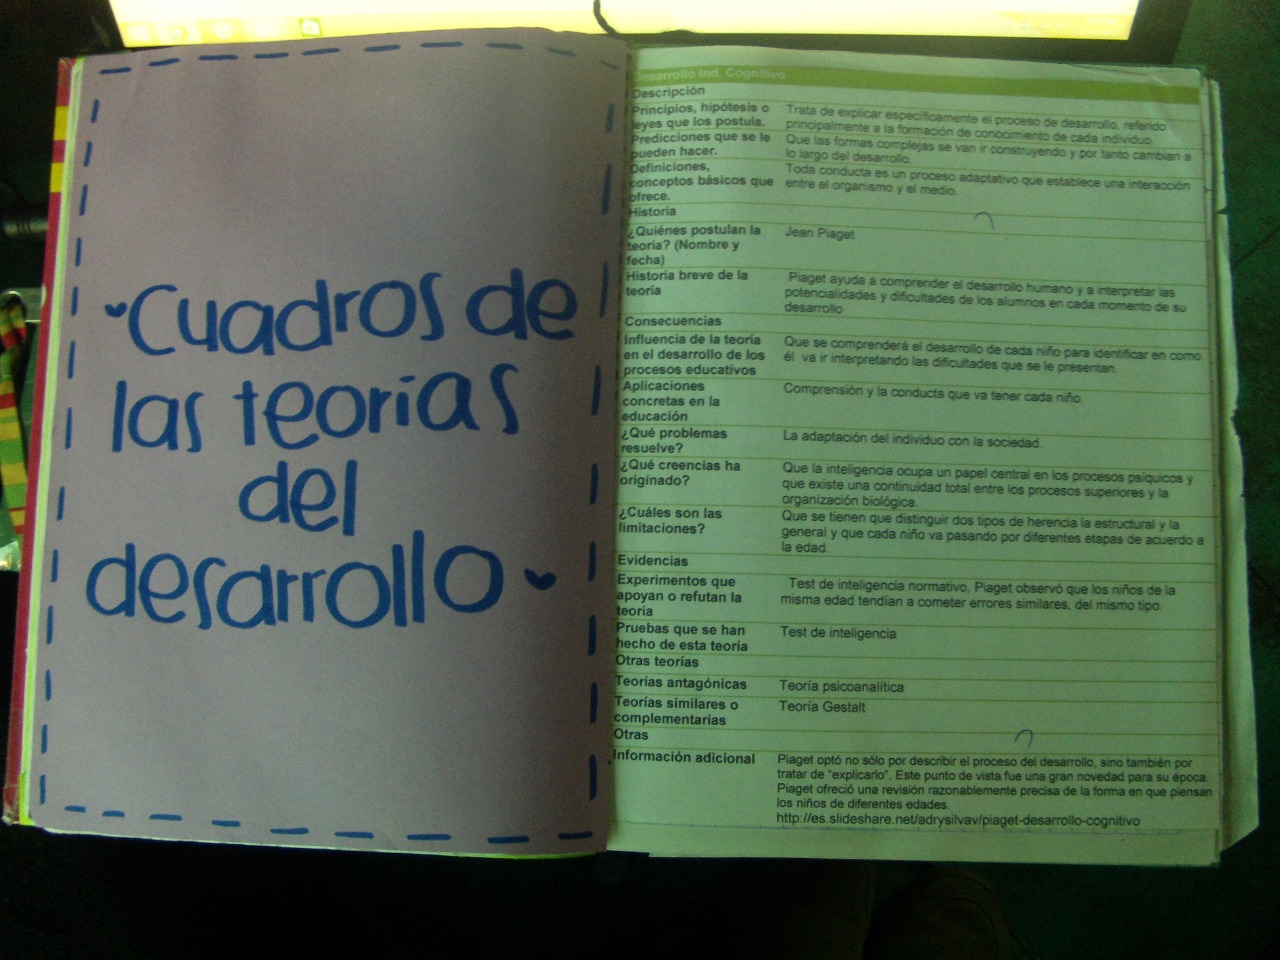 Cuadros de
las teorías
del
desarrollo
Desarrollo Ind. Cognitivo
Descripción
Principios, hipótesis o
leyes que los postula.
Trata de explicar específicamente el proceso de desarrollo, referido
principalmente a la formación de conocimiento de cada individuo.
Predicciones que se le
pueden hacer.
Que las formas complejas se van ir construyendo y por tanto cambian a
lo largo del desarrollo.
Definiciones,
conceptos básicos que
ofrece.
Toda conducta es un proceso adaptativo que establece una interacción
entre el organismo y el medio.
Historia
¿Quiénes postulan la
teoría? (Nombre y
fecha)
Jean Piaget
Historia breve de la
teoría
Piaget ayuda a comprender el desarrollo humano y a interpretar las
potencialidades y dificultades de los alumnos en cada momento de su
desarrollo
Consecuencias
Influencia de la teoría
en el desarrollo de los
procesos educativos
Que se comprenderá el desarrollo de cada niño para identificar en como
él va ir interpretando las dificultades que se le presentan.
Aplicaciones
concretas en la
educación
Comprensión y la conducta que va tener cada niño.
¿Qué problemas
resuelve?
La adaptación del individuo con la sociedad.
¿Qué creencias ha
originado?
Que la inteligencia ocupa un papel central en los procesos psíquicos y
que existe una continuidad total entre los procesos superiores y la
organización biológica.
¿Cuáles son las
limitaciones?
Que se tienen que distinguir dos tipos de herencia la estructural y la
general y que cada niño va pasando por diferentes etapas de acuerdo a
la edad.
Evidencias
Experimentos que
apoyan o refutan la
teoría
Test de inteligencia normativo, Piaget observó que los niños de la
misma edad tendían a cometer errores similares, del mismo tipo.
Pruebas que se han
hecho de esta teoría
Test de inteligencia
Otras teorías
Teorías antagónicas
Teoría psicoanalítica
Teorías similares o
complementarias
Teoría Gestalt
Otras
Información adicional
Piaget optó no sólo por describir el proceso del desarrollo, sino también por
tratar de "explicarlo". Este punto de vista fue una gran novedad para su época.
Piaget ofreció una revisión razonablemente precisa de la forma en que piensan
los niños de diferentes edades.
http://es.slideshare.net/adrysilvav/piaget-desarrollo-cognitivo